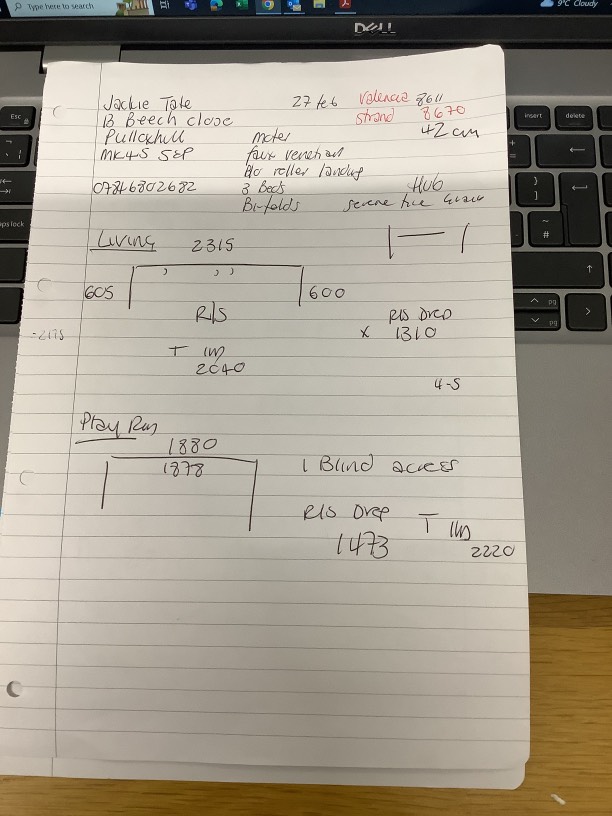 Type here to search
9°C Cloudy
DELL
Esc
insert
delete
Jackie Tate
27 Feb
Valencia 8611
13 Beech close
Strand 8670
Pulloxhill
42 cm
Moter
MK45 5EP
faux venetian
No roller landing
07846802682
3 Beds
Hub
Bi-folds
Living
2315
605
600
R/S
R/S Drop
x 1310
-2175
T
2040
4-5
Play Rm
1880
1878
1 Blind across
R/S Drop
1473
T
2220